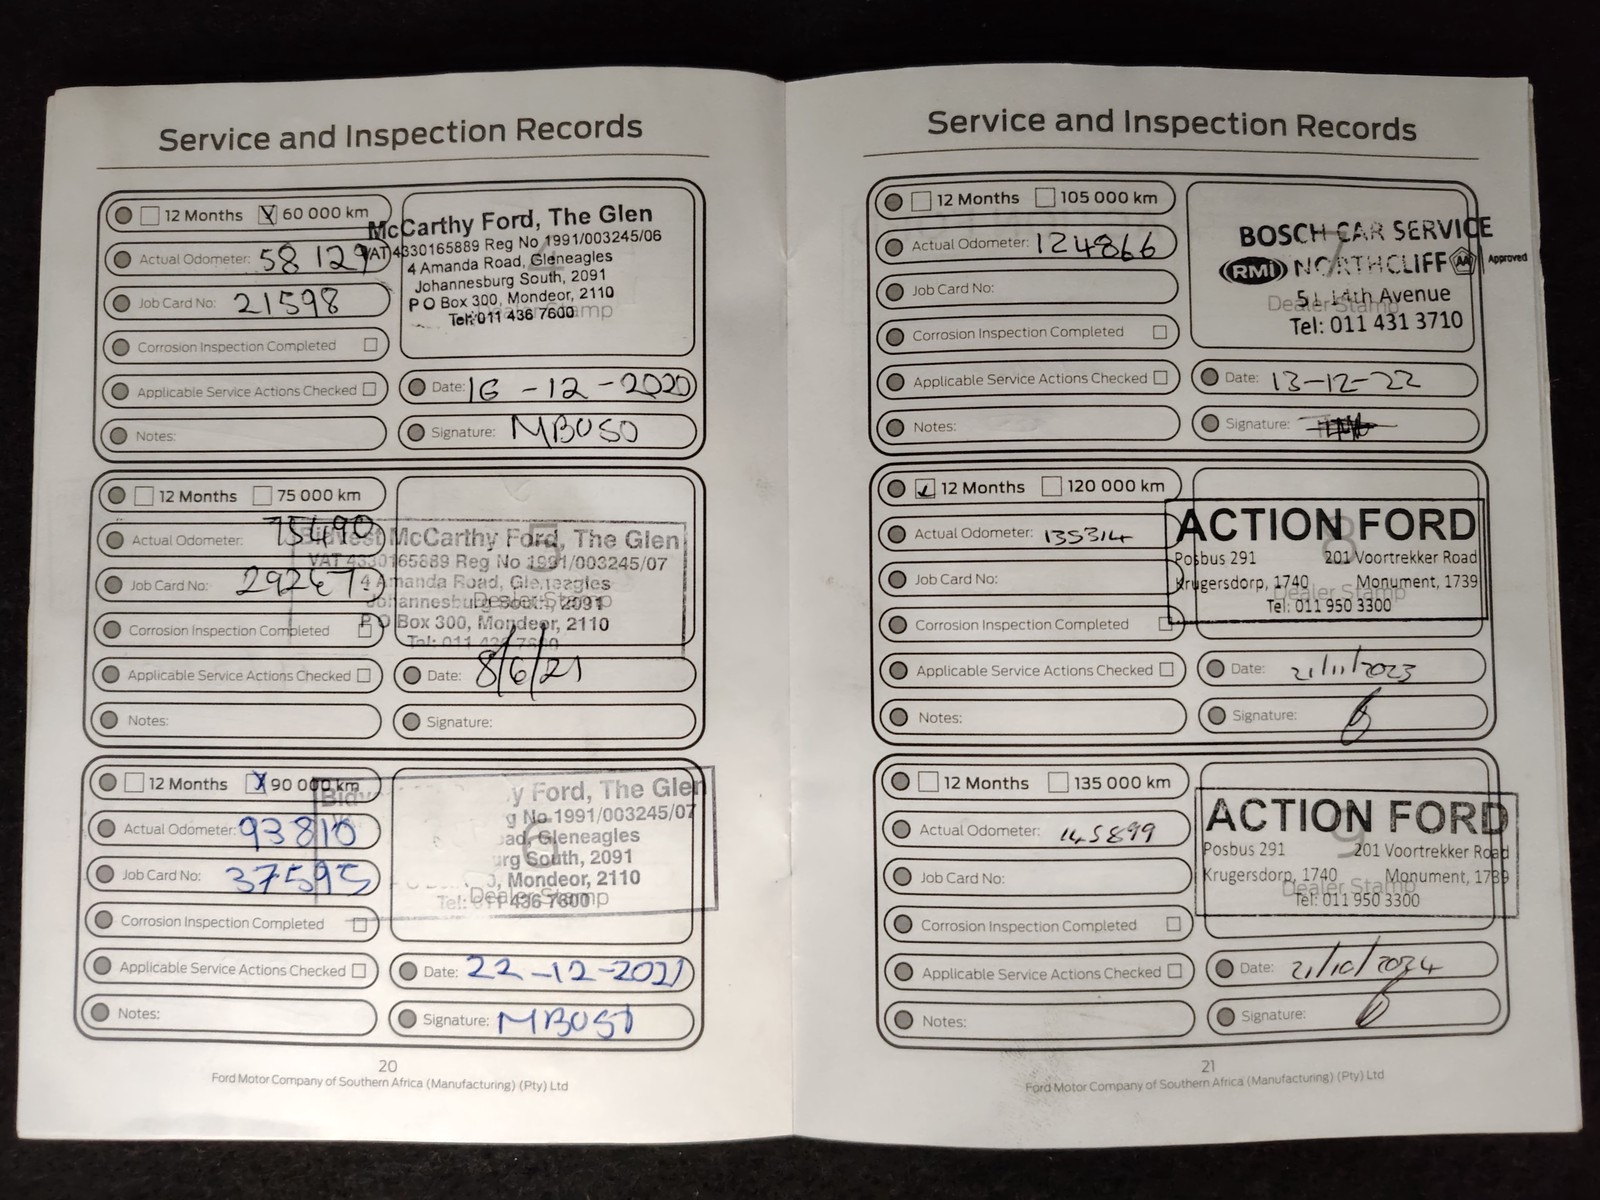 Service and Inspection Records
12 Months 60 000 km
McCarthy Ford, The Glen
VAT 4330165889 Reg No 1991/003245/06
4 Amanda Road, Gleneagles
Johannesburg South, 2091
P O Box 300, Mondeor, 2110
Tel: 011 436 7600
Actual Odometer: 58 129
Job Card No: 21598
Corrosion Inspection Completed
Applicable Service Actions Checked
Date: 16-12-2020
Notes:
Signature: MBUSO
12 Months 75 000 km
5
Bidvest McCarthy Ford, The Glen
VAT 4330165889 Reg No 1991/003245/07
4 Amanda Road, Gleneagles
Johannesburg South, 2091
Dealer Stamp
P O Box 300, Mondeor, 2110
Tel: 011 436 7600
Actual Odometer: 75490
Job Card No:
Corrosion Inspection Completed
Applicable Service Actions Checked
Date: 8/6/21
Notes:
Signature:
12 Months 90 000 km
6
y Ford, The Glen
g No 1991/003245/07
oad, Gleneagles
urg South, 2091
Mondeor, 2110
Dealer Stamp
Tel: 011 436 7600
Actual Odometer: 93810
Job Card No: 37595
Corrosion Inspection Completed
Applicable Service Actions Checked
Date: 22-12-2021
Notes:
Signature:
20
Ford Motor Company of Southern Africa (Manufacturing) (Pty) Ltd
Service and Inspection Records
12 Months 105 000 km
BOSCH CAR SERVICE
RMI NORTHCLIFF AA Approved
Dealer Stamp
51 14th Avenue
Tel: 011 431 3710
Actual Odometer: 124866
Job Card No:
Corrosion Inspection Completed
Applicable Service Actions Checked
Date: 13-12-22
Notes:
Signature:
12 Months 120 000 km
8
ACTION FORD
Posbus 291 201 Voortrekker Road
Krugersdorp, 1740 Monument, 1739
Dealer Stamp
Tel: 011 950 3300
Actual Odometer: 135314
Job Card No:
Corrosion Inspection Completed
Applicable Service Actions Checked
Date: 21/11/2023
Notes:
Signature:
12 Months 135 000 km
9
ACTION FORD
Posbus 291 201 Voortrekker Road
Krugersdorp, 1740 Monument, 1739
Dealer Stamp
Tel: 011 950 3300
Actual Odometer: 145899
Job Card No:
Corrosion Inspection Completed
Applicable Service Actions Checked
Date: 21/10/2024
Notes:
Signature:
21
Ford Motor Company of Southern Africa (Manufacturing) (Pty) Ltd